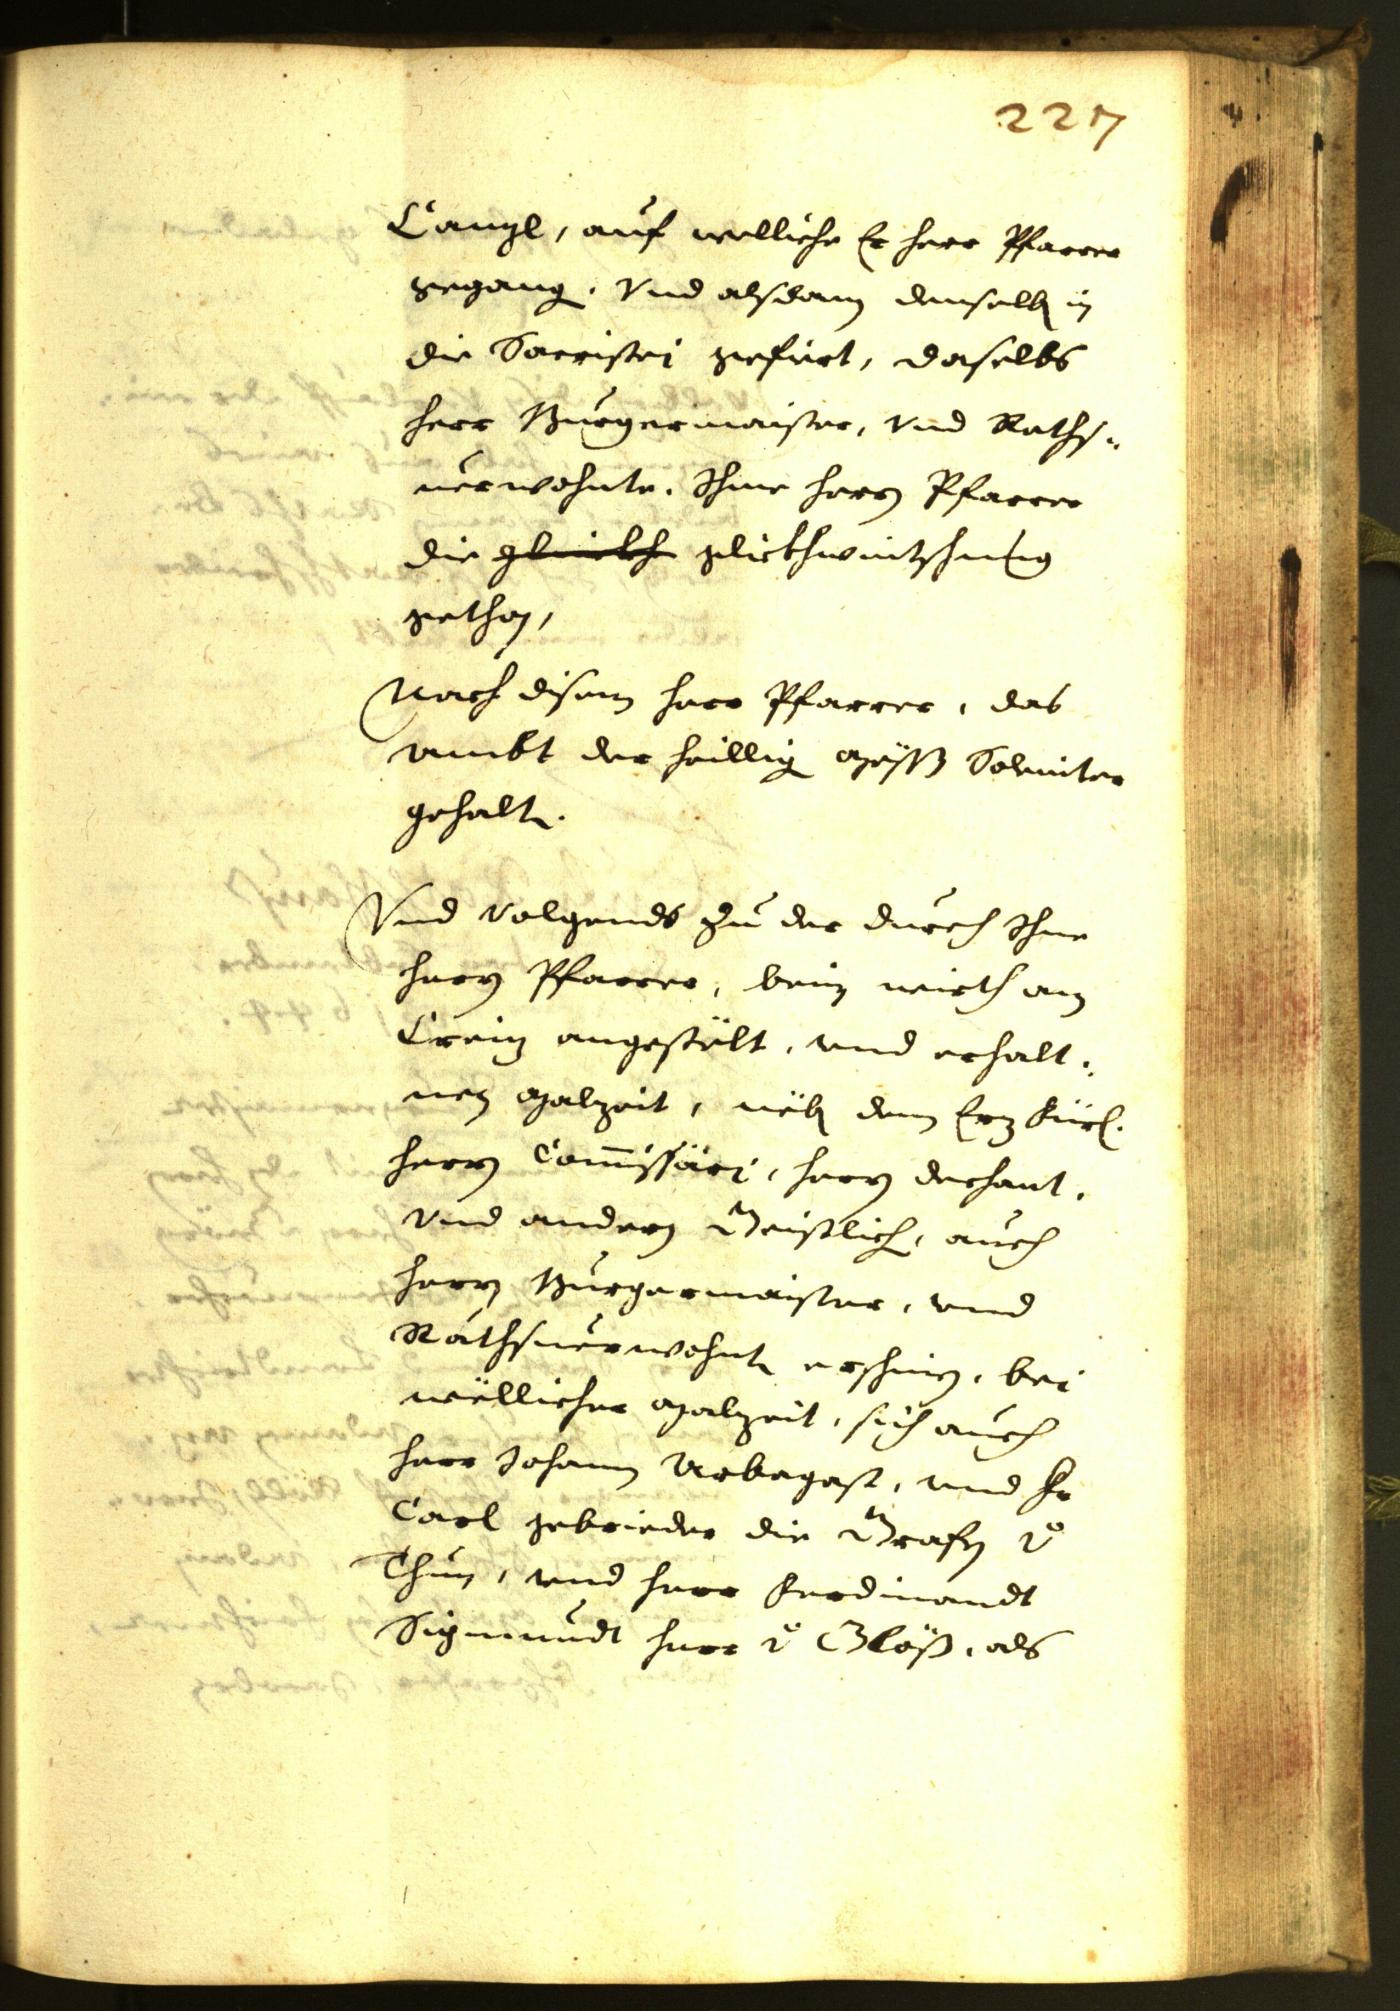 227
Canzl, auf welliche Er herr Pfarrer
gegang. Vnd alsdann denselb in
die Sacristej gefüert, daselbs
herr Burgermaister, vnd Raths-
uerwohnte. Ihme herrn Pfarrer
die glückh glickhwüntschung
gethon,
Nach disem herr Pfarrer, das
ambt der heillig Mëss Soleniter
gehalt.
Vnd volgends zu der durch Ihne
herrn Pfarrer, beim wirth am
Creiz angestëlt, vnd erhalt-
nen Malzeit, nëb dem Erz Fürl.
herrn Commissärj, herrn dechant,
vnd andern Geistlich, auch
herrn Burgermaister, vnd
Rathsuerwohnt erschinen, bej
wëllicher Malzeit, sich auch
herr Johann Arbogast, vnd Hr
Carl gebrieder die Grafen v
Thun, vnd herr Ferdinandt
Sigmundt herr v Clöß, als